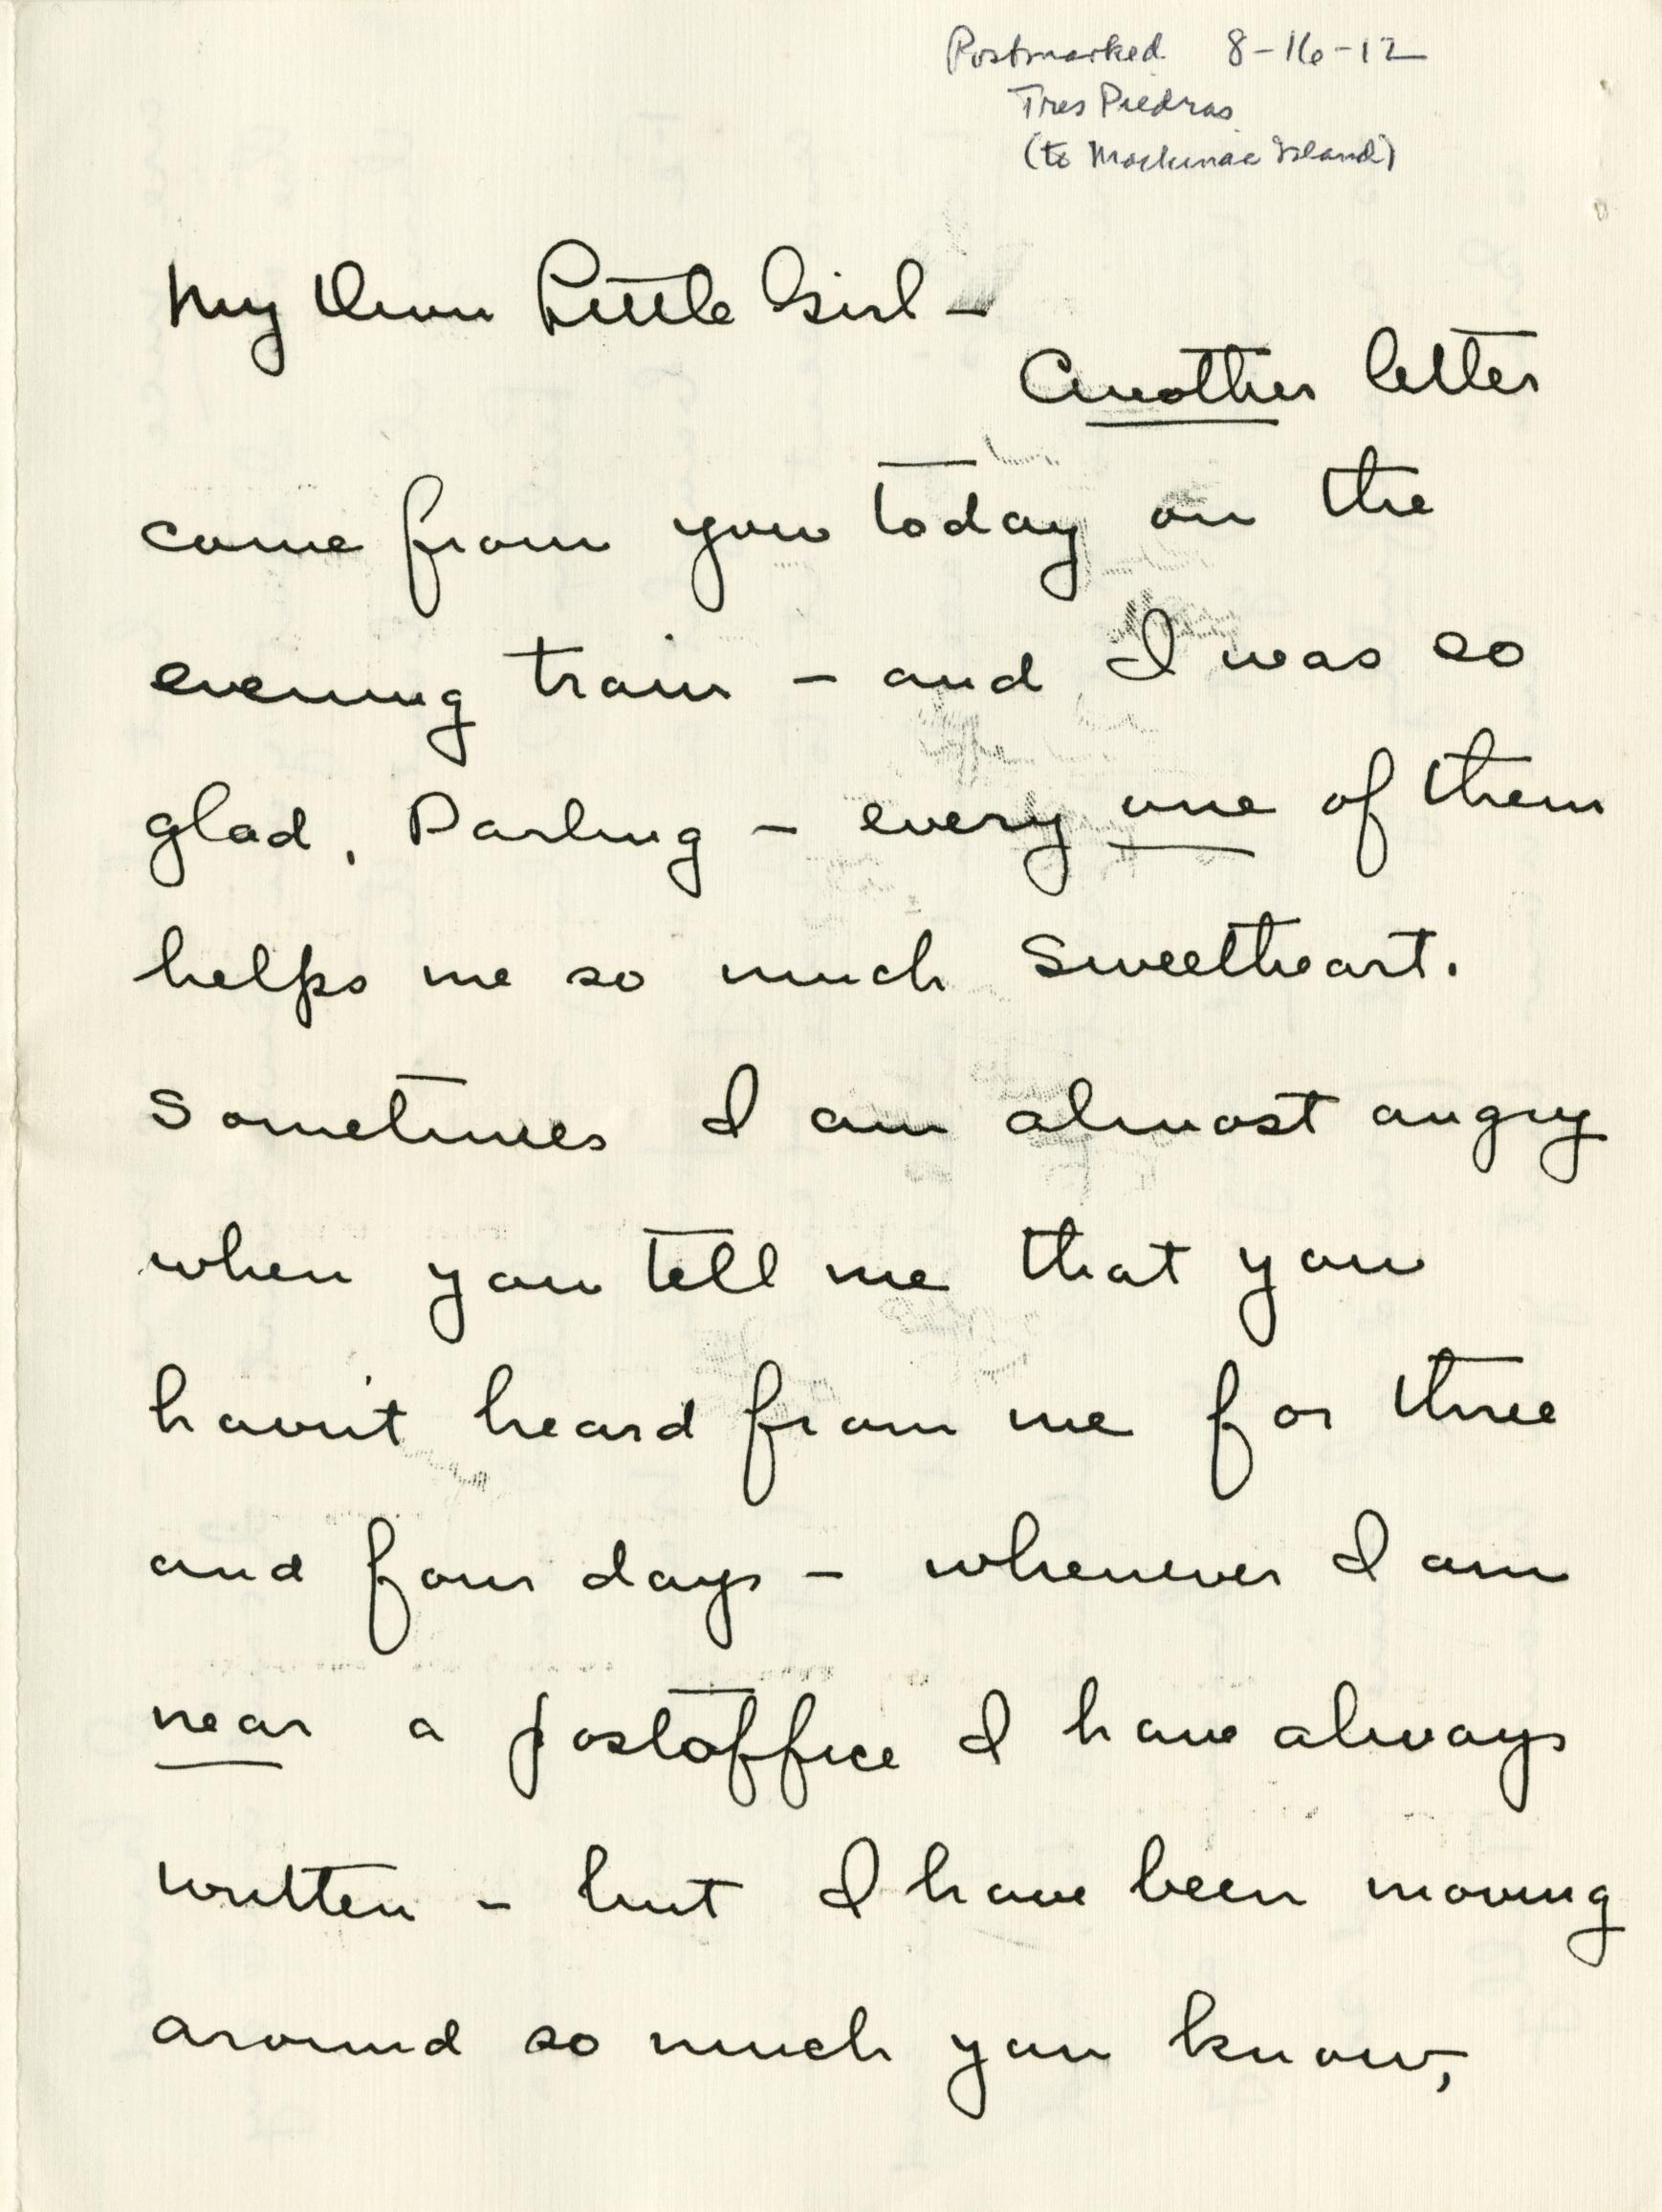 Postmarked 8-16-12
Tres Piedras
(to Mackinac Island)
My Own Little Girl —
Another letter
came from you today on the
evening train — and I was so
glad, Darling — every one of them
helps me so much Sweetheart.
Sometimes I am almost angry
when you tell me that you
havn't heard from me for three
and four days — whenever I am
near a postoffice I have always
written — but I have been moving
around so much you know,